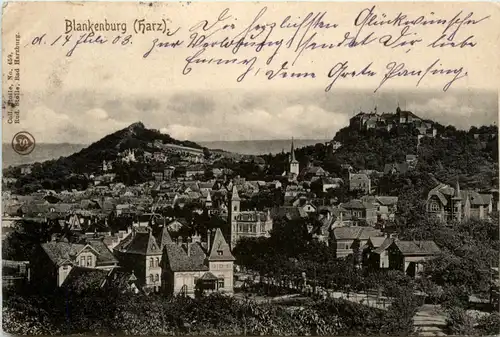 Blankenburg (Harz).
d. 14 Juli 03. Die herzlichsten Glückwünsche
zur Verlobung sendet Dir, liebe
Emmy, Deine Grete
Coll. Stolle, No. 459.
Rud. Stolle, Bad Harzburg.